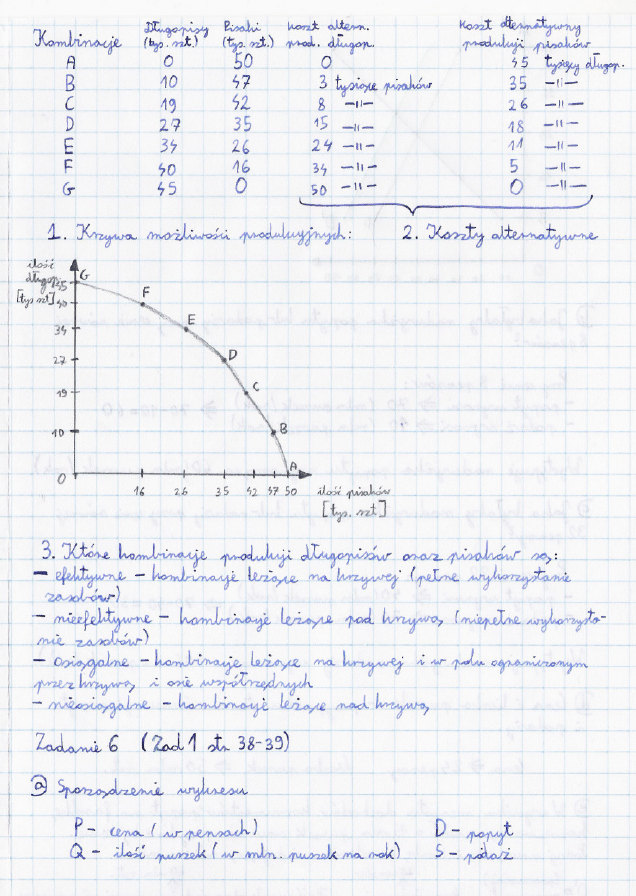 Kombinacje Długopisy (tys. szt.) Pisaki (tys. szt.) koszt altern. prod. długop. Koszt alternatywny produkcji pisaków
A 0 50 0 45 tysięcy długop.
B 10 47 3 tysiące pisaków 35 —||—
C 19 42 8 —||— 26 —||—
D 27 35 15 —||— 18 —||—
E 34 26 24 —||— 11 —||—
F 40 16 34 —||— 5 —||—
G 45 0 50 —||— 0 —||—
1. Krzywa możliwości produkcyjnych: 2. Koszty alternatywne
ilość
długop.
[tys. szt]
45 G
40 F
34 E
27 D
19 C
10 B
0 A
16 26 35 42 47 50 ilość pisaków
[tys. szt]
3. Które kombinacje produkcji długopisów oraz pisaków są:
– efektywne – kombinacje leżące na krzywej (pełne wykorzystanie
zasobów)
– nieefektywne – kombinacje leżące pod krzywą (niepełne wykorzysta-
nie zasobów)
– osiągalne – kombinacje leżące na krzywej i w polu ograniczonym
przez krzywą i osie współrzędnych
– nieosiągalne – kombinacje leżące nad krzywą
Zadanie 6 (Zad 1 str. 38-39)
a) Sporządzenie wykresu
P – cena (w pensach) D – popyt
Q – ilość puszek (w mln. puszek na rok) S – podaż